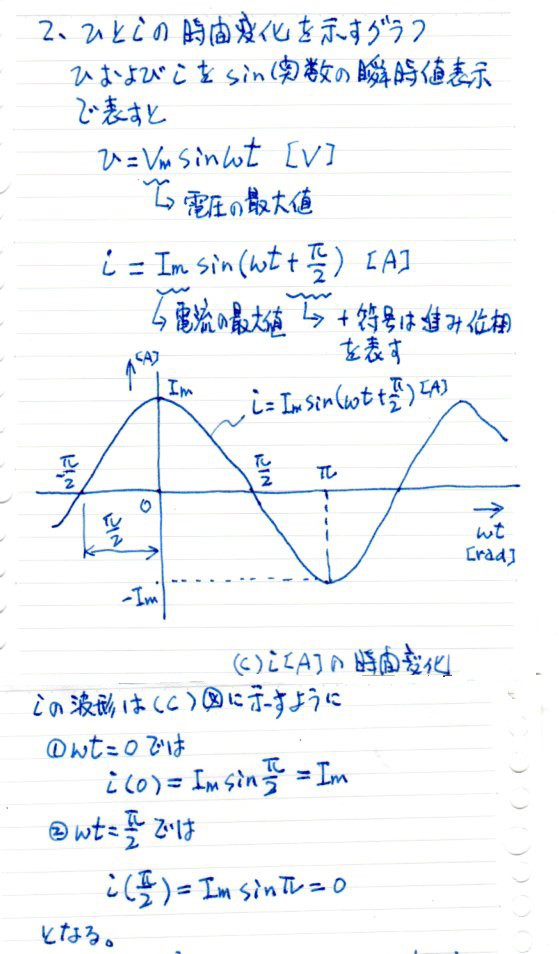 2、υとiの時間変化を示すグラフ
υおよびiをsin関数の瞬時値表示
で表すと
υ=Vm sinωt [V]
↳ 電圧の最大値
i = Im sin(ωt+π/2) [A]
↳ 電流の最大値 ↳ +符号は進み位相
を表す
↑[A]
Im
i=Im sin(ωt+π/2)[A]
-π/2
π/2
π
0
π/2
→
ωt
[rad]
-Im
(C) i[A]の時間変化
iの波形は(C)図に示すように
①ωt=0では
i(0)=Im sin π/2 = Im
②ωt=π/2では
i(π/2)=Im sinπ=0
となる。